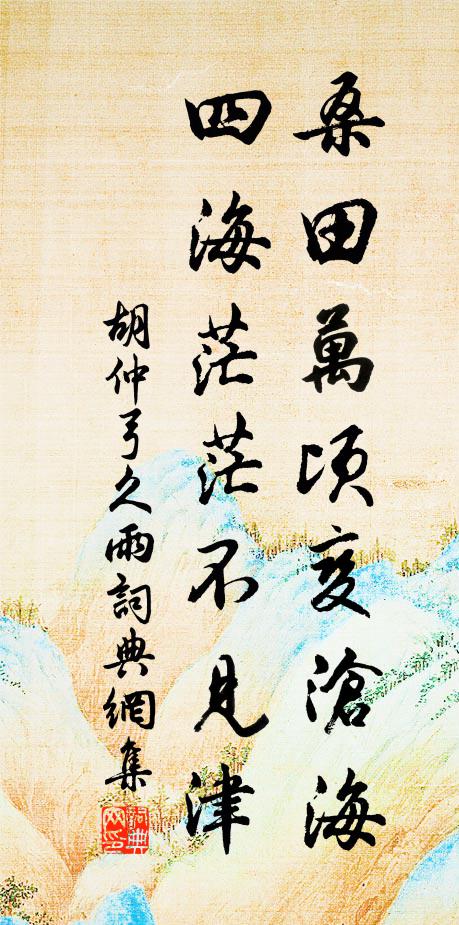 桑田萬頃变滄海
四海茫茫不見津
胡仲弓久雨詞典網集
詞典网印